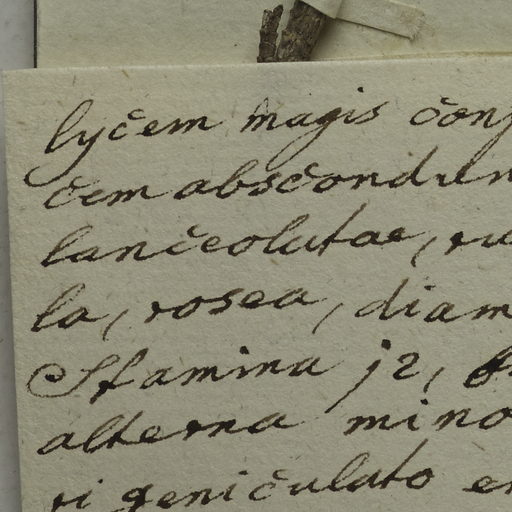 lyčem magis čonf
čem absčondun
lančeolatae, ru
la, rosea, diam
Stamina j2,
alterna mino
ri geničulato e